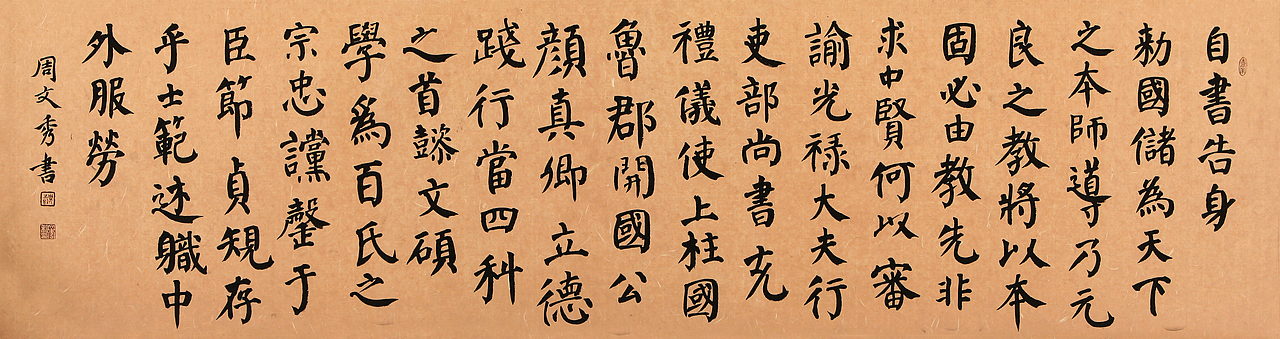 自書告身
勅國儲為天下
之本師導乃元
良之教將以本
固必由教先非
求中賢何以審
諭光禄大夫行
吏部尚書充
禮儀使上柱國
魯郡開國公
顏真卿立德
踐行當四科
之首懿文碩
學爲百氏之
宗忠讜罄于
臣節貞規存
乎士範述軄中
外服勞
周文秀書